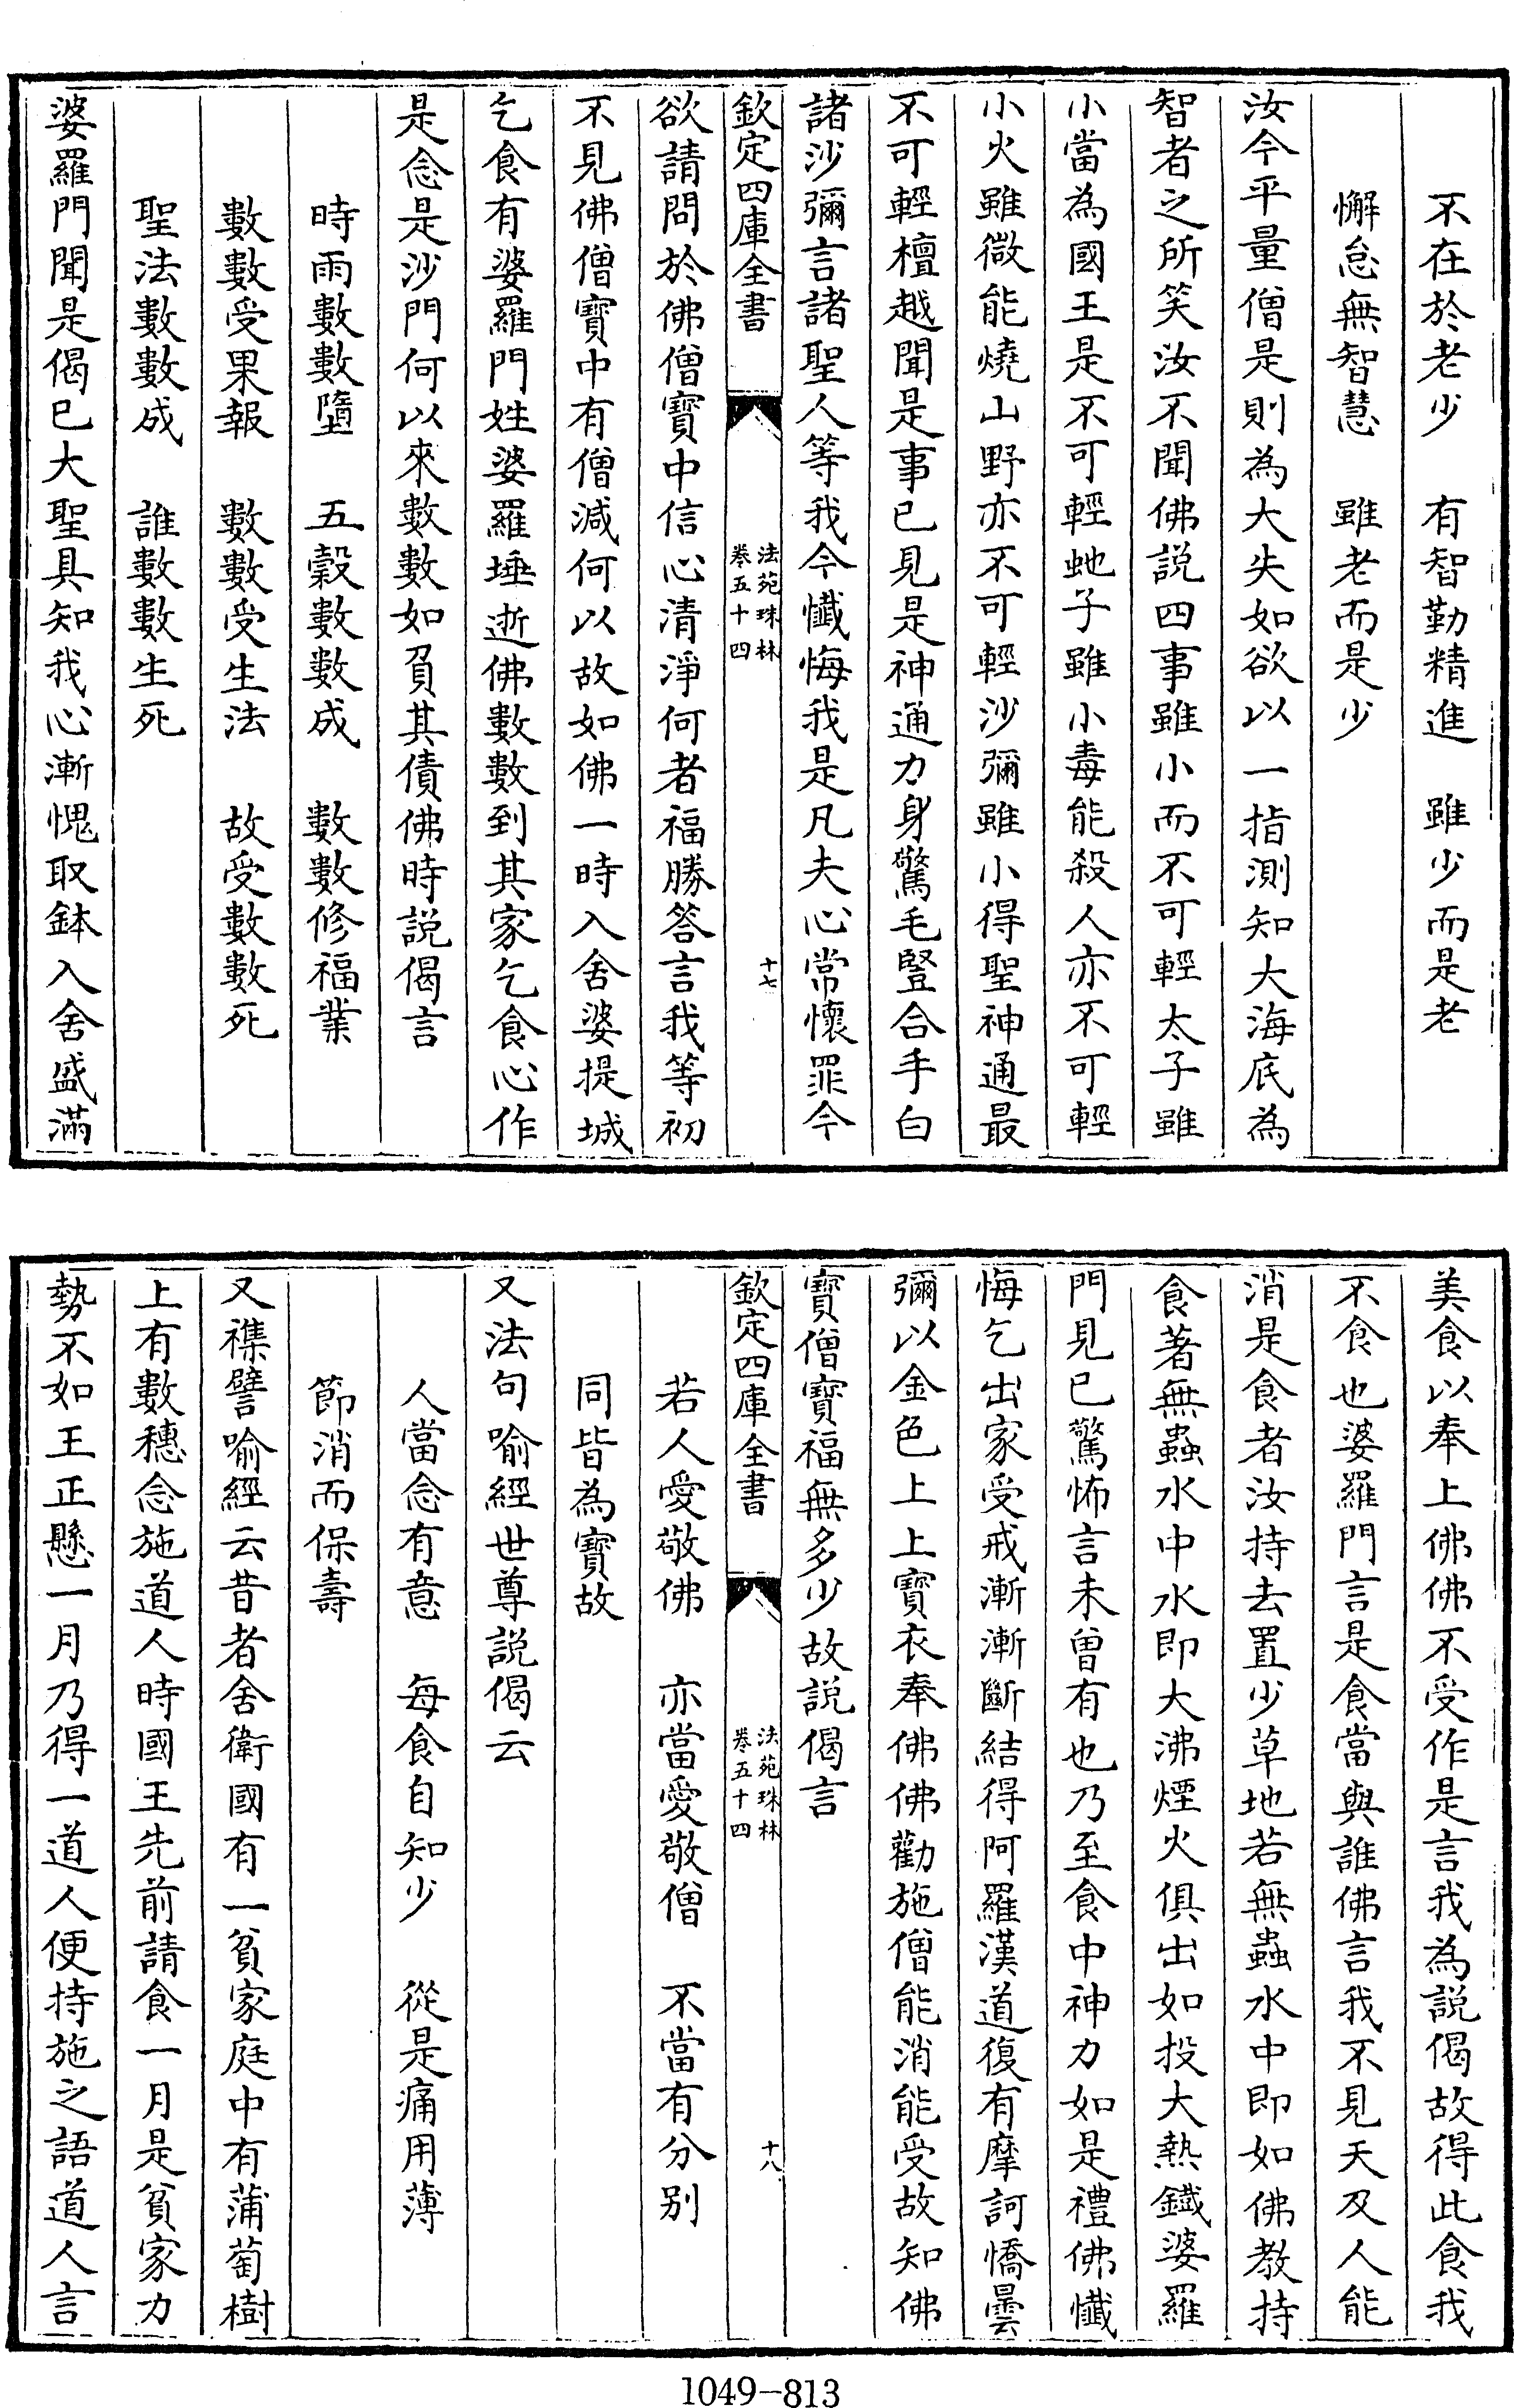 不在於老少　有智勤精進　雖少而是老
懈怠無智慧　雖老而是少
汝今平量僧是則為大失如欲以一指測知大海底為
智者之所笑汝不聞佛説四事雖小而不可輕太子雖
小當為國王是不可輕虵子雖小毒能殺人亦不可輕
小火雖微能燒山野亦不可輕沙彌雖小得聖神通最
不可輕檀越聞是事已見是神通力身驚毛豎合手白
諸沙彌言諸聖人等我今懺悔我是凡夫心常懷罪今
欽定四庫全書
法苑珠林
卷五十四
十七
欲請問於佛僧寶中信心清淨何者福勝答言我等初
不見佛僧寶中有僧減何以故如佛一時入舍婆提城
乞食有婆羅門姓婆羅埵逝佛數數到其家乞食心作
是念是沙門何以來數數如負其債佛時説偈言
時雨數數墮　五穀數數成　數數修福業
數數受果報　數數受生法　故受數數死
聖法數數成　誰數數生死
婆羅門聞是偈已大聖具知我心漸愧取鉢入舍盛滿
美食以奉上佛佛不受作是言我為説偈故得此食我
不食也婆羅門言是食當與誰佛言我不見天及人能
消是食者汝持去置少草地若無蟲水中即如佛教持
食著無蟲水中水即大沸煙火俱出如投大熱鐡婆羅
門見已驚怖言未曾有也乃至食中神力如是禮佛懺
悔乞出家受戒漸漸斷結得阿羅漢道復有摩訶憍曇
彌以金色上上寶衣奉佛佛勸施僧能消能受故知佛
寶僧寶福無多少故説偈言
欽定四庫全書
法苑珠林
卷五十四
十八
若人愛敬佛　亦當愛敬僧　不當有分别
同皆為寶故
又法句喻經世尊説偈云
人當念有意　每食自知少　從是痛用薄
節消而保壽
又襍譬喻經云昔者舍衛國有一貧家庭中有蒲萄樹
上有數穗念施道人時國王先前請食一月是貧家力
勢不如王正懸一月乃得一道人便持施之語道人言
1049-813